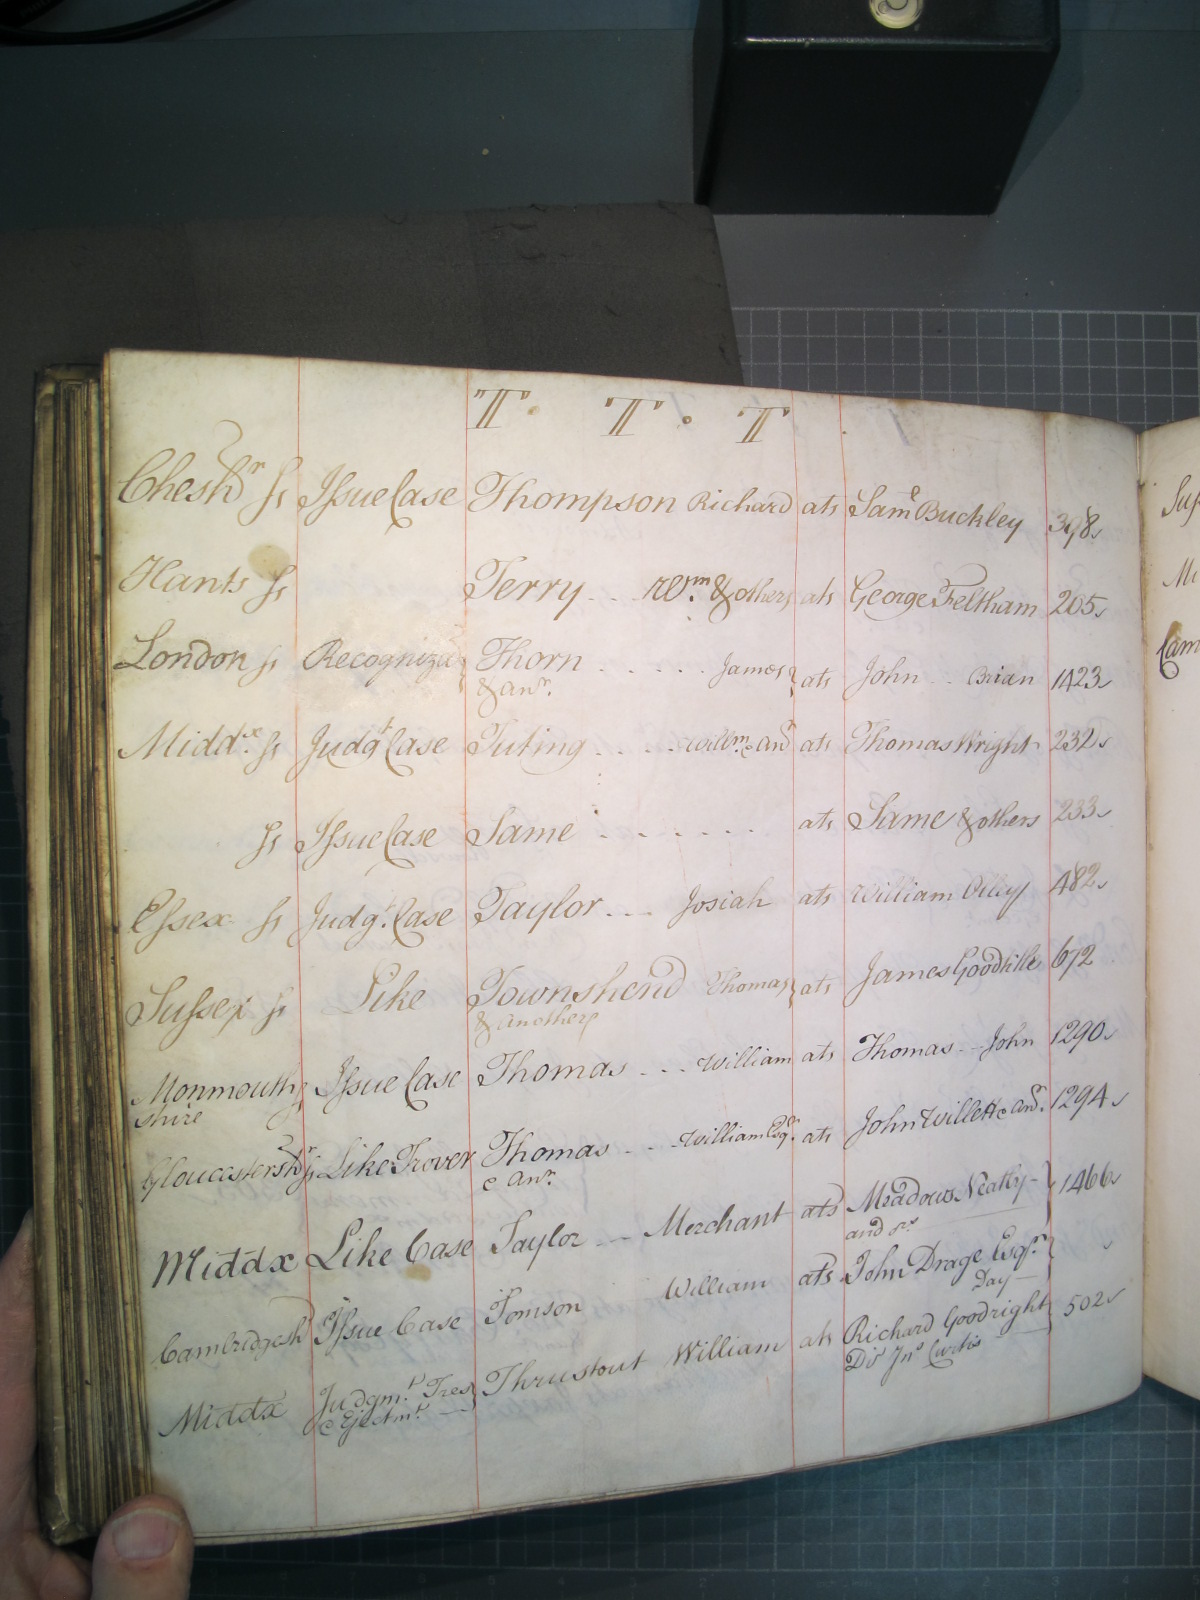 T. T. T
Cheshr ss Issue Case Thompson Richard ats Saml Buckley 398
Hants ss Terry Wm. & others ats George Feltham 205
London ss Recogniza Thorn James ats John Brian 1423
& anr.
Middx. ss Judgt Case Tuting Willm. & anr ats Thomas Wright 232
ss Issue Case Same ats Same & others 233
Essex ss Judgt. Case Taylor Josiah ats William 482
Sussex ss Like Townshend Thomas ats James Goodtitle 672
& another
Monmouth ss Issue Case Thomas William ats Thomas John 1290
shire
Gloucestershr ss Like Trover Thomas William Esqr. ats John Willett & anr. 1294
& anr.
Middx Like Case Taylor Merchant ats Meadows Neatly 1466
and or
Cambridgesh Issue Case Tomson William ats John Drage Esqr.
Day
Middx Judgmt. Tres Thrustout William ats Richard Goodright 502
& Ejectmt. Dis Jno Curtis
Sus
Mi
Cam